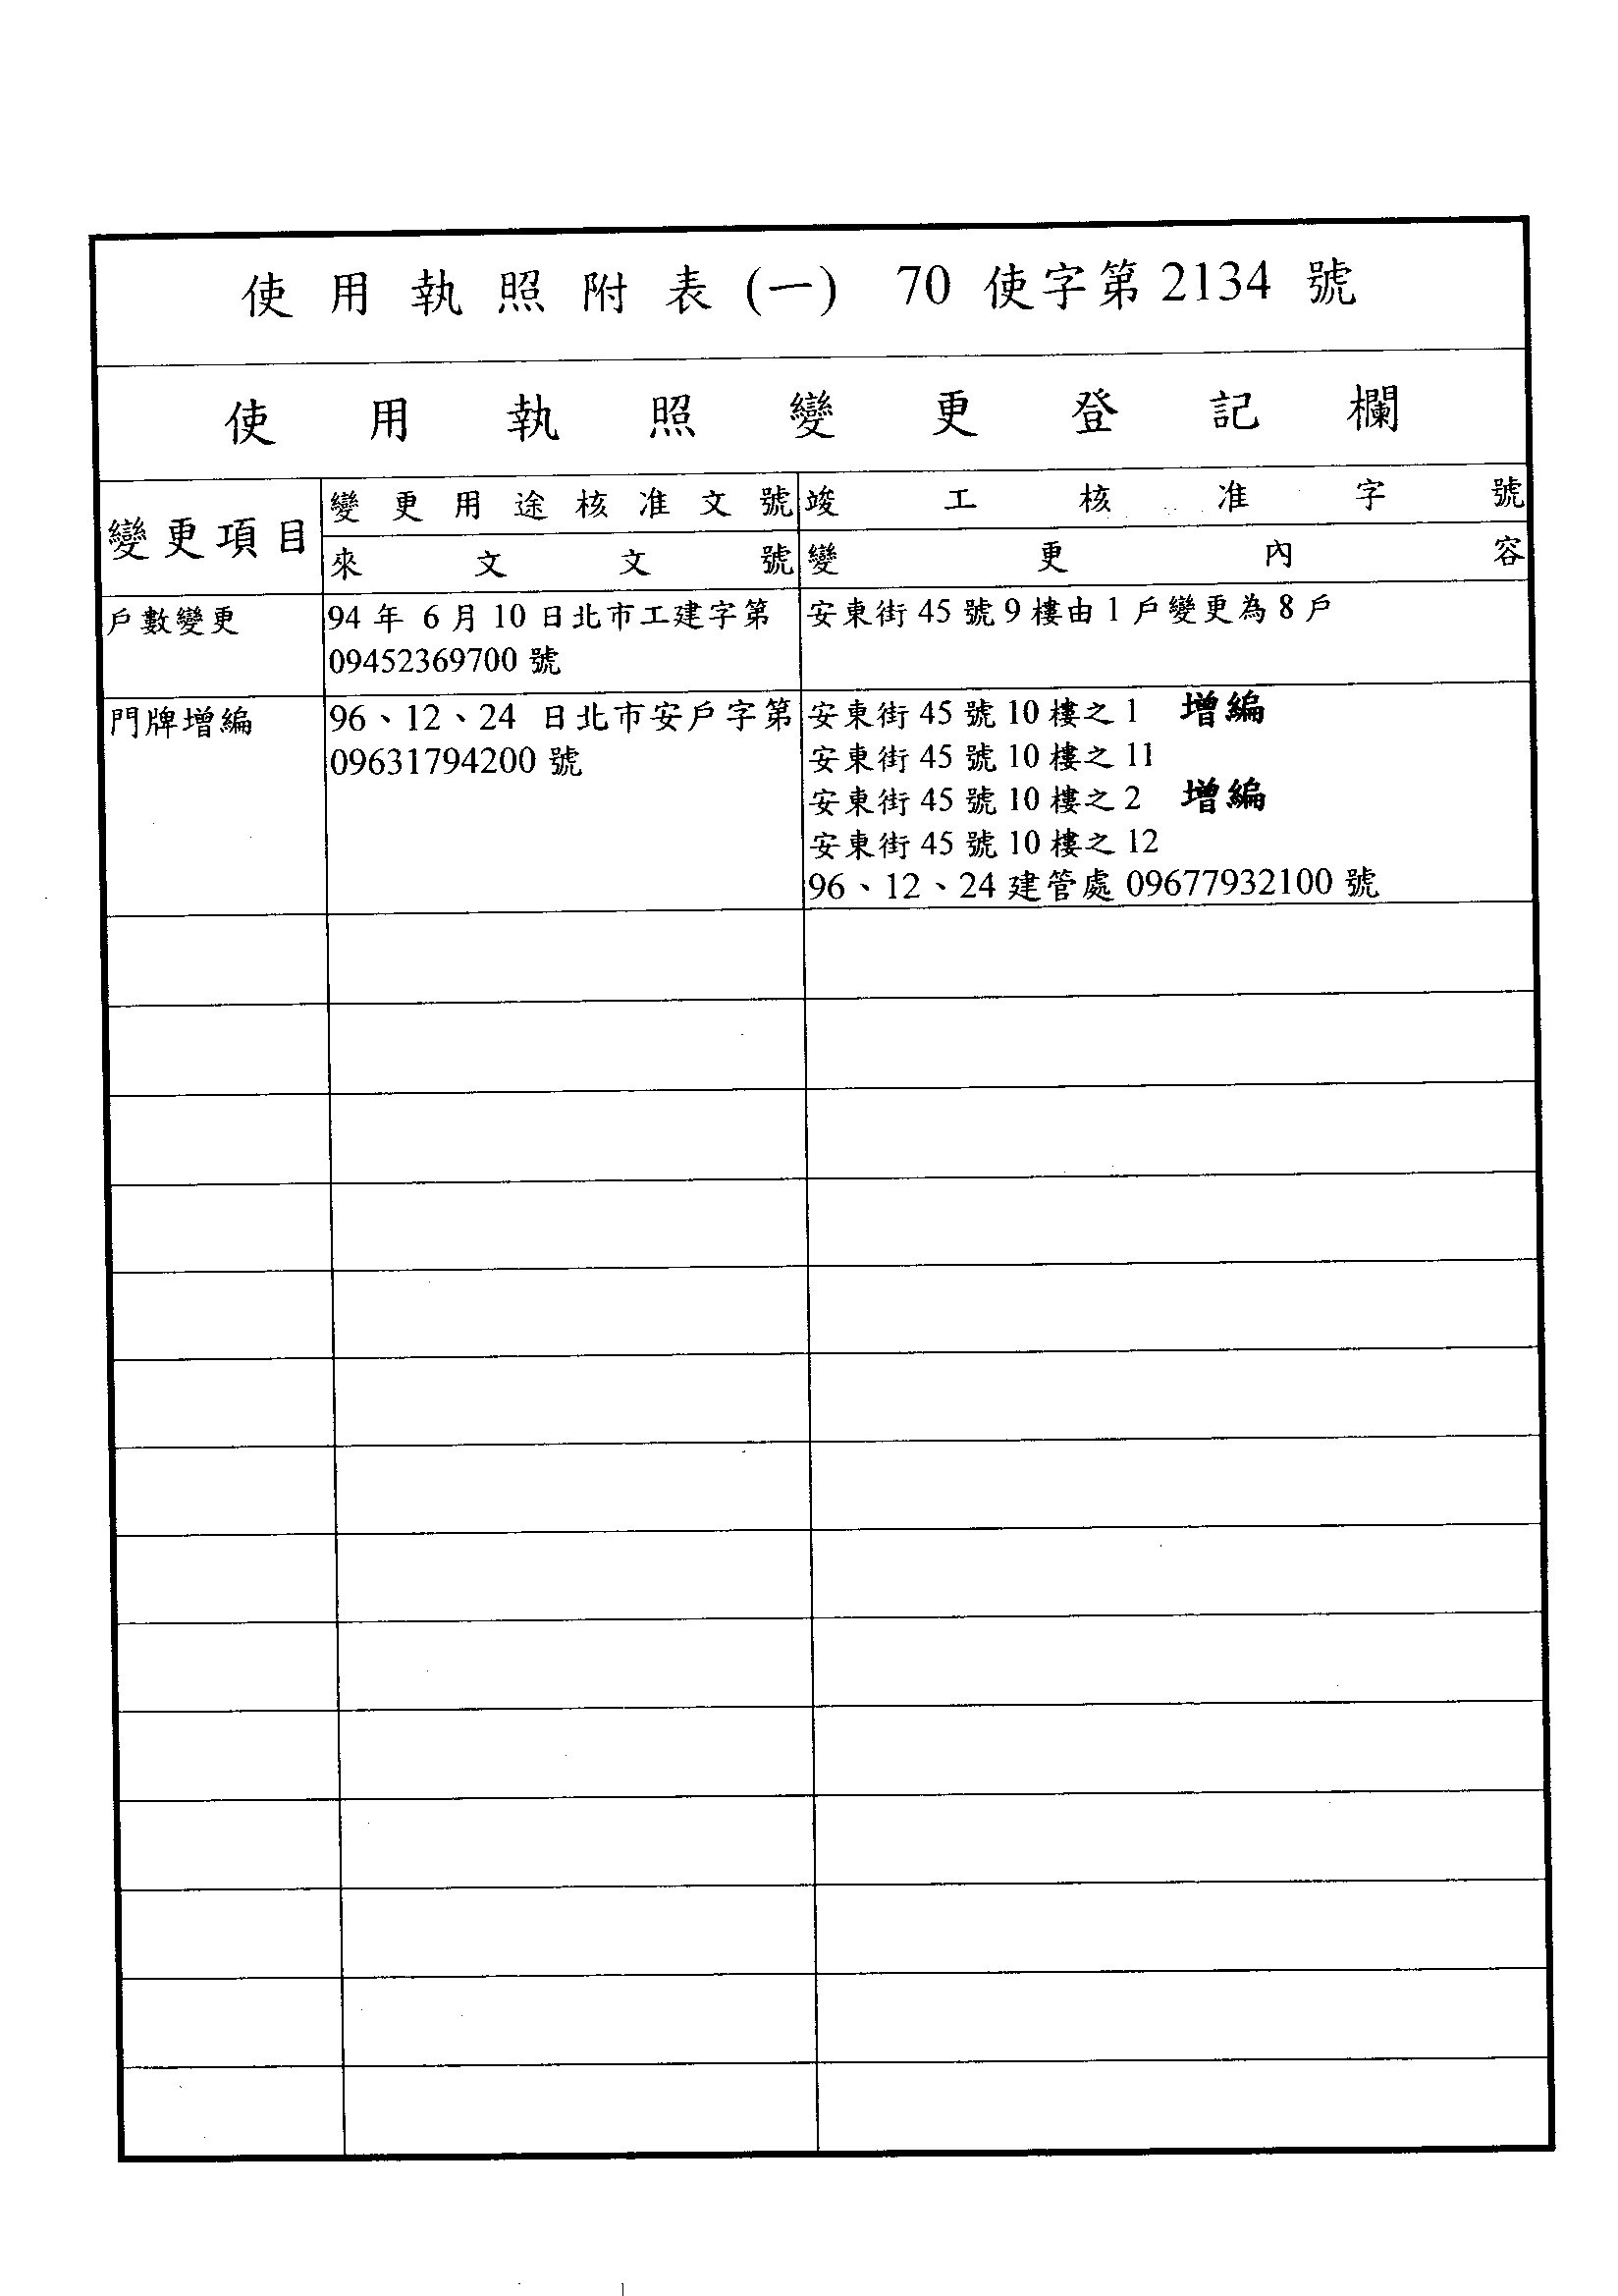 使用執照附表(一) 70使字第2134號
使用執照變更登記欄
變更項目
變更用途核准文號
竣工核准字號
來文文號
變更內容
戶數變更
94年 6月10日北市工建字第
09452369700號
安東街45號9樓由1戶變更為8戶
門牌增編
96、12、24 日北市安戶字第
09631794200號
安東街45號10樓之1 增編
安東街45號10樓之11
安東街45號10樓之2 增編
安東街45號10樓之12
96、12、24建管處09677932100號